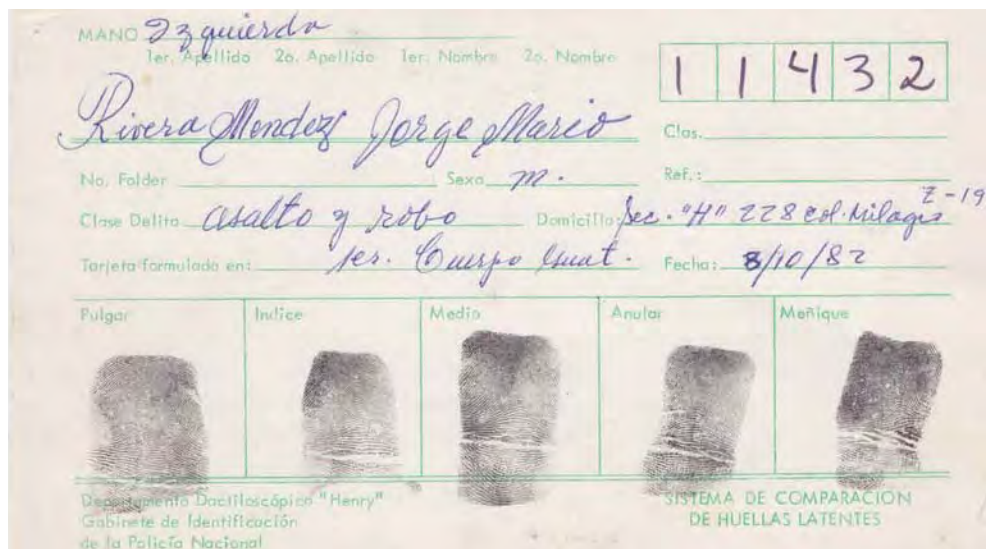 MANO Izquierda
1er. Apellido 2o. Apellido 1er. Nombre 2o. Nombre
1 1 4 3 2
Rivera Mendez Jorge Mario
Clas.
No. Folder Sexo m. Ref.:
Z-19
Clase Delito asalto y robo Domicilio: Sec. "H" 228 col. Milagro
Tarjeta formulada en: 1er. Cuerpo Guat. Fecha: 8/10/82
Pulgar Indice Medio Anular Meñique
Departamento Dactiloscópico "Henry"
Gabinete de Identificación
de la Policía Nacional
SISTEMA DE COMPARACION
DE HUELLAS LATENTES